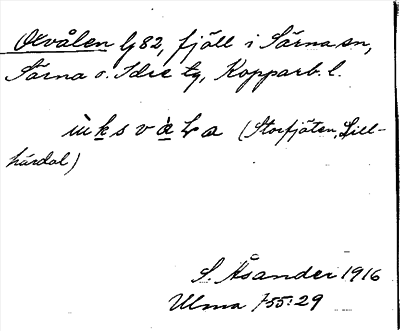 Oxvålen G82, fjäll i Särna sn,
Särna o. Idre tg, Kopparb. l.
ùksvàLa (Storfjäten, Lill-
härdal)
S. Åsander 1916
Ulma 755:29